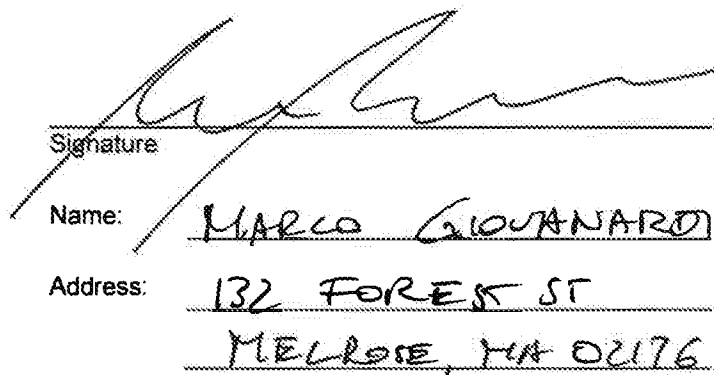 Signature
Name: MARCO GIOVANARDI
Address: 132 FOREST ST
MELROSE, MA 02176